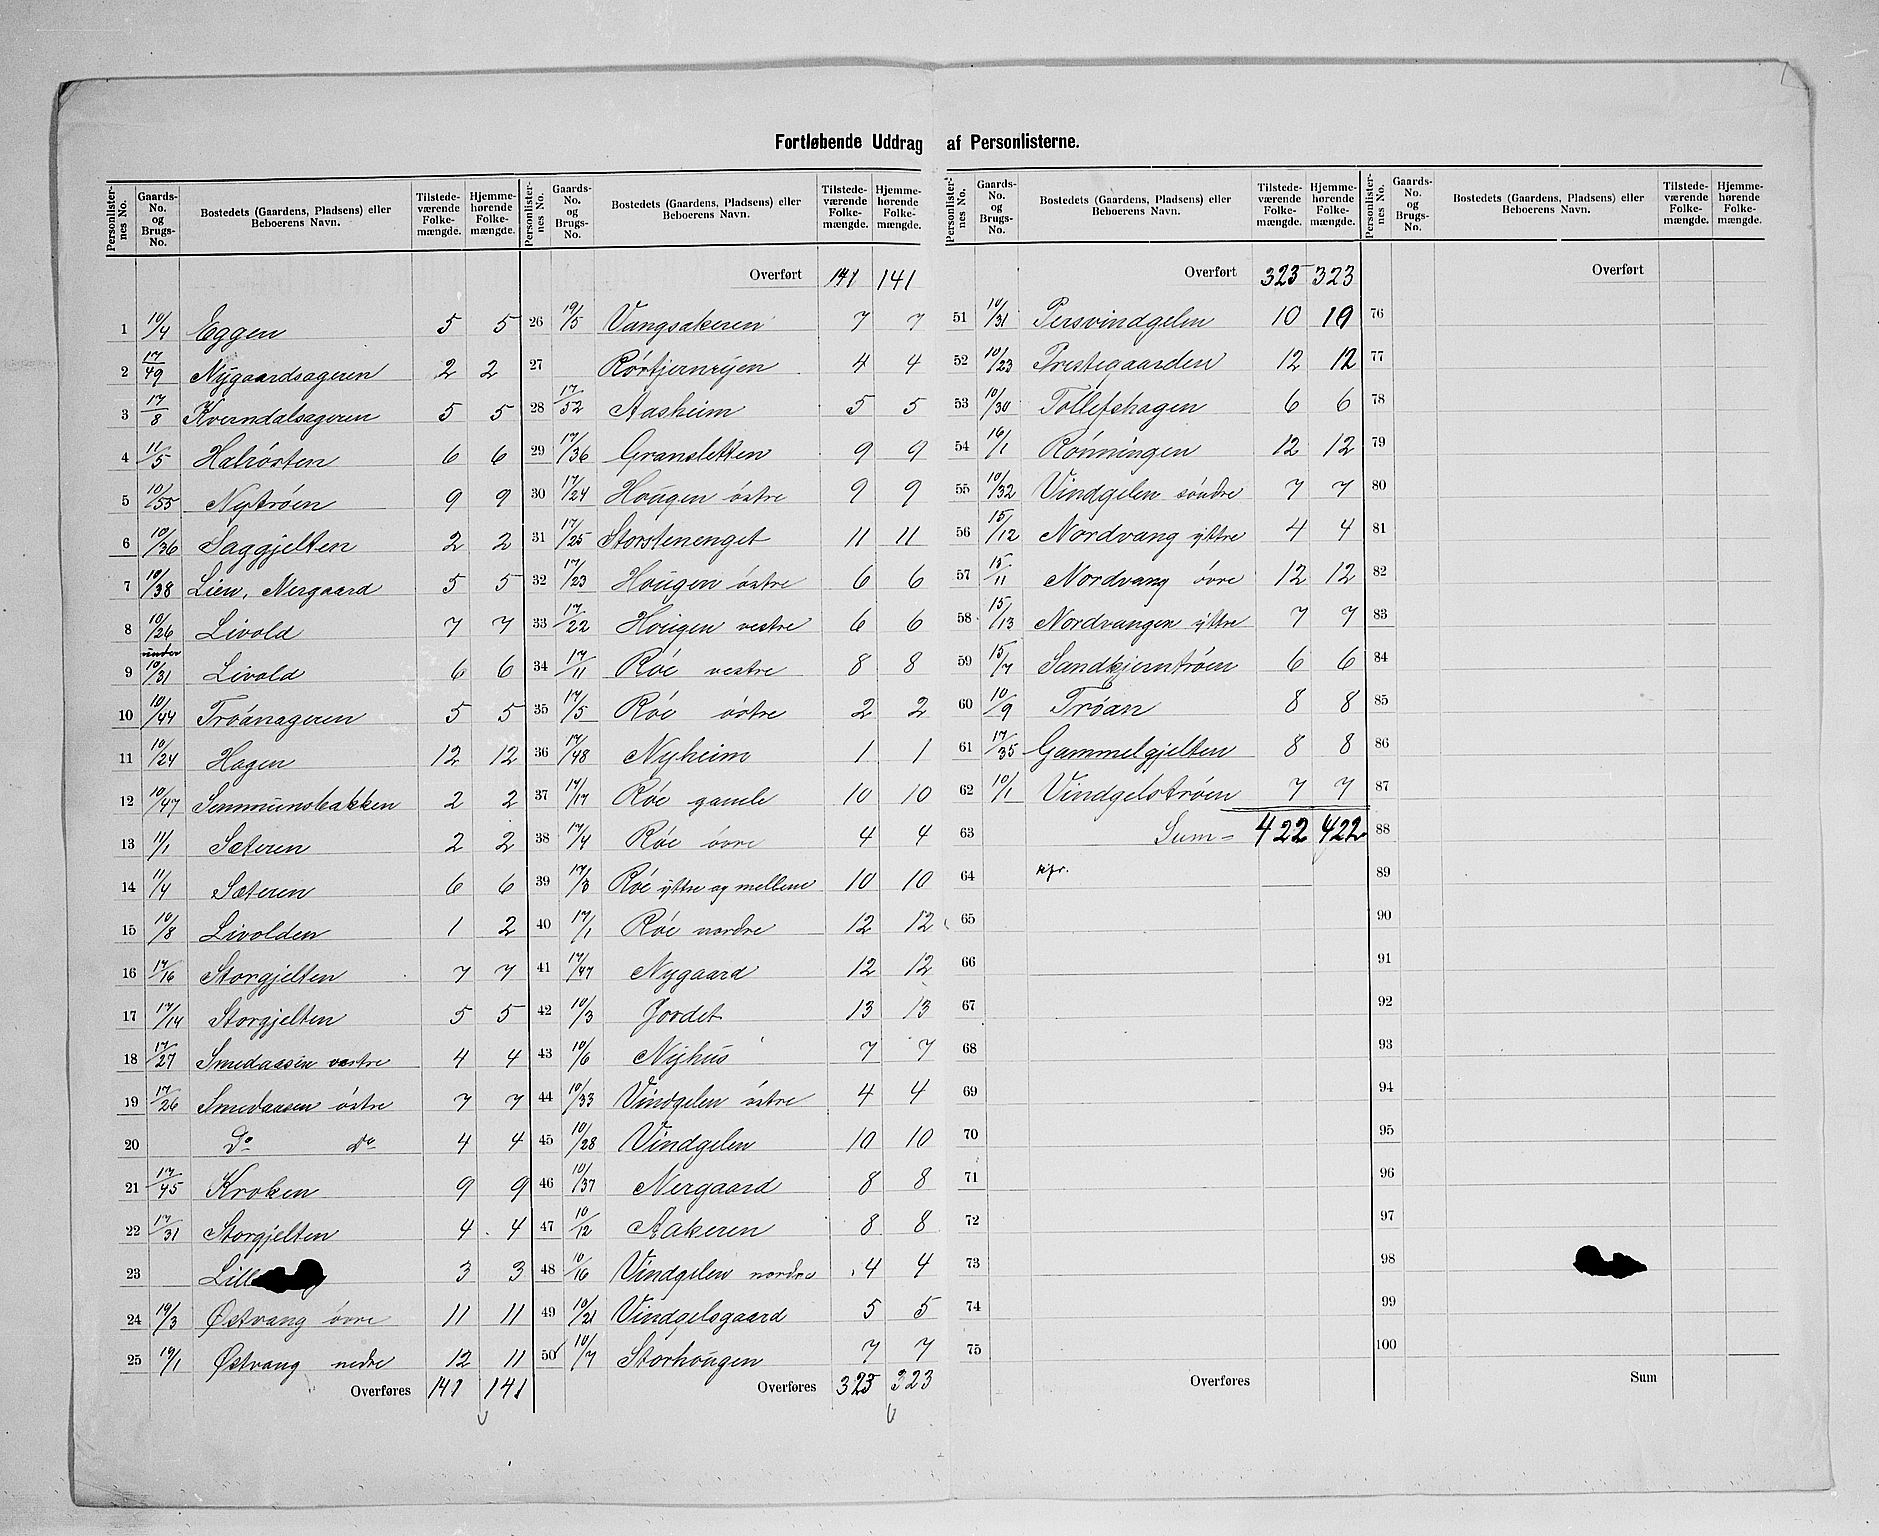 Fortløbende Uddrag af Personlisterne.
Personlister-nes No. | Gaards-No. og Brugs-No. | Bostedets (Gaardens, Pladsens) eller Beboerens Navn. | Tilstede-værende Folke-mængde. | Hjemme-hørende Folke-mængde.
1 | 10/4 | Eggen | 5 | 5
2 | 17/49 | Nygaardsageren | 2 | 2
3 | 17/8 | Kverndalsageren | 5 | 5
4 | 11/5 | Halrösten | 6 | 6
5 | 10/55 | Nytröen | 9 | 9
6 | 10/36 | Saggjelten | 2 | 2
7 | 10/38 | Lien, Nergaard | 5 | 5
8 | 10/26 | Livold | 7 | 7
9 | under 10/31 | Livold | 6 | 6
10 | 10/44 | Tröanageren | 5 | 5
11 | 10/24 | Hagen | 12 | 12
12 | 10/47 | Simmunsbakken | 2 | 2
13 | 11/1 | Sæteren | 2 | 2
14 | 11/4 | Sæteren | 6 | 6
15 | 10/8 | Livolden | 1 | 2
16 | 17/16 | Storgjelten | 7 | 7
17 | 17/14 | Storgjelten | 5 | 5
18 | 17/27 | Smedaasen vestre | 4 | 4
19 | 17/26 | Smedaasen östre | 7 | 7
20 | Do do | 4 | 4
21 | 17/45 | Kroken | 9 | 9
22 | 17/31 | Storgjelten | 4 | 4
23 | 3 | 3
24 | 19/3 | Østvang övre | 11 | 11
25 | 19/1 | Østvang nedre | 12 | 11
Overføres | 141 | 141
Personlister-nes No. | Gaards-No. og Brugs-No. | Bostedets (Gaardens, Pladsens) eller Beboerens Navn. | Tilstede-værende Folke-mængde. | Hjemme-hørende Folke-mængde.
Overført | 141 | 141
26 | 19/5 | Vangsakeren | 7 | 7
27 | Rörtjernryen | 4 | 4
28 | 17/52 | Aasheim | 5 | 5
29 | 17/36 | Gransletten | 9 | 9
30 | 17/24 | Hougen östre | 9 | 9
31 | 17/25 | Storstenenget | 11 | 11
32 | 17/23 | Hougen östre | 6 | 6
33 | 17/22 | Hougen vestre | 6 | 6
34 | 17/11 | Röe vestre | 8 | 8
35 | 17/5 | Röe östre | 2 | 2
36 | 17/48 | Nyheim | 1 | 1
37 | 17/17 | Röe gamle | 10 | 10
38 | 17/4 | Röe övre | 4 | 4
39 | 17/3 | Röe yttre og mellem | 10 | 10
40 | 17/1 | Röe nordre | 12 | 12
41 | 17/47 | Nygaard | 12 | 12
42 | 10/3 | Jordet | 13 | 13
43 | 10/6 | Nyhus | 7 | 7
44 | 10/33 | Vindgelen östre | 4 | 4
45 | 10/28 | Vindgelen | 10 | 10
46 | 10/37 | Nergaard | 8 | 8
47 | 10/12 | Aakeren | 8 | 8
48 | 10/16 | Vindgelen nordre | 4 | 4
49 | 10/21 | Vindgelsgaard | 5 | 5
50 | 10/7 | Storhougen | 7 | 7
Overføres | 323 | 323
Personlister-nes No. | Gaards-No. og Brugs-No. | Bostedets (Gaardens, Pladsens) eller Beboerens Navn. | Tilstede-værende Folke-mængde. | Hjemme-hørende Folke-mængde.
Overført | 323 | 323
51 | 10/31 | Persvindgelen | 10 | 10
52 | 10/23 | Prestegaarden | 12 | 12
53 | 10/30 | Tollefshagen | 6 | 6
54 | 16/1 | Rönningen | 12 | 12
55 | 10/32 | Vindgelen söndre | 7 | 7
56 | 15/12 | Nordvang yttre | 4 | 4
57 | 15/11 | Nordvang övre | 12 | 12
58 | 15/13 | Nordvangen yttre | 7 | 7
59 | 15/7 | Sandkjerntröen | 6 | 6
60 | 10/9 | Tröan | 8 | 8
61 | 17/35 | Gammelgjelten | 8 | 8
62 | 10/1 | Vindgelströen | 7 | 7
63 | Sum = | 422 | 422
64
65
66
67
68
69
70
71
72
73
74
75
Overføres
Personlister-nes No. | Gaards-No. og Brugs-No. | Bostedets (Gaardens, Pladsens) eller Beboerens Navn. | Tilstede-værende Folke-mængde. | Hjemme-hørende Folke-mængde.
Overført
76
77
78
79
80
81
82
83
84
85
86
87
88
89
90
91
92
93
94
95
96
97
98
99
100
Sum